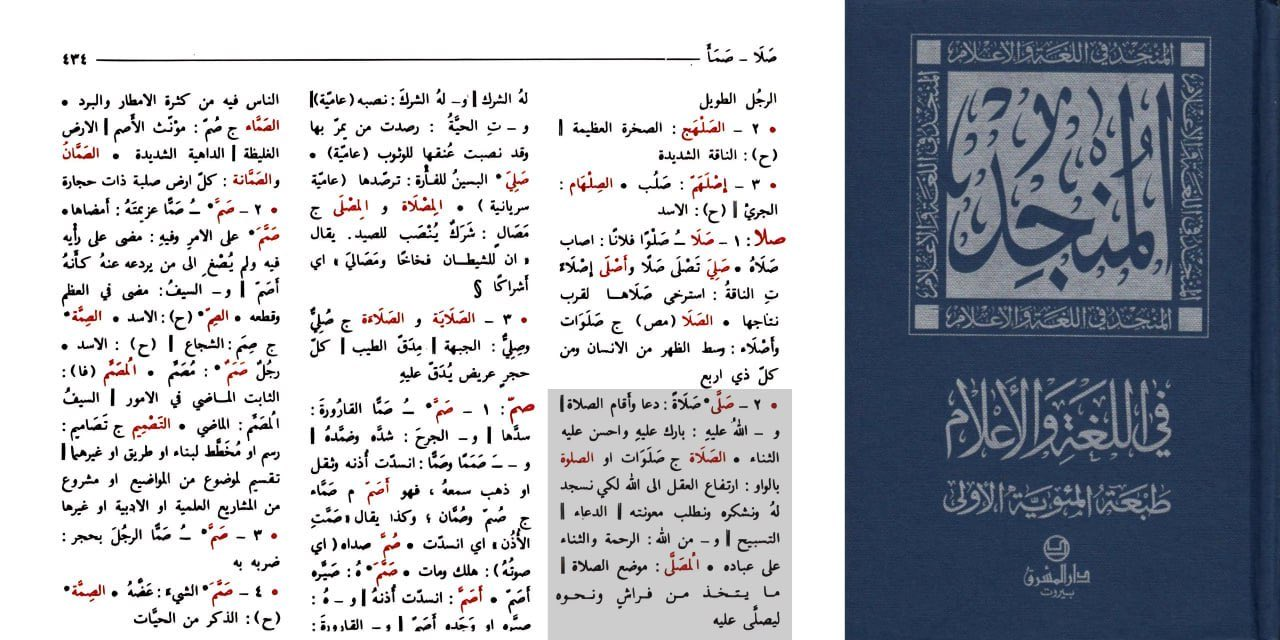 صَلَا ـ صَمَأَ
٤٣٤
الرجُل الطويل
• ٢ ـ الصَلْهَج : الصخرة العظيمة ||
(ح): الناقة الشديدة
• ٣ ـ إصْلَهَمَّ : صَلُب • الصِلْهَام :
الجريْ || (ح): الاسد
صلا : ١ ـ صَلَا ـُ صَلْوًا فلانًا : اصاب
صَلَاهُ • صَلِيَ تَصْلَى صَلًا وأَصْلَى إصْلَاءً
تِ الناقةُ : استرخى صَلَاهـا لقرب
نتاجها • الصَلَا (مص) ج صَلَوَات
وأَصْلَاء: وسط الظهر من الانسان ومن
كلّ ذي اربع
• ٢ ـ صَلَّى° صَلَاةً: دعا وأقام الصلاة ||
و ـ اللهُ عليهِ : بارك عليهِ واحسن عليه
الثناء • الصَلَاة ج صَلَوَات او الصلوة
بالواو : ارتفاع العقل الى الله لكي نسجد
لهُ ونشكره ونطلب معونته || الدعاء ||
التسبيح || و ـ من الله : الرحمة والثناء
على عباده • المُصَلَّى: موضع الصلاة ||
ما يتخذ من فراشٍ ونحوه
ليصلَّى عليه
لهُ الشرك || و ـ لهُ الشركَ : نصبه (عاميّة)||
و ـ تِ الحيَّةُ : رصدت من يمرّ بها
وقد نصبت عُنقها للوثوب (عاميّة) •
صَلِيَ° البسينُ للفـأرة: ترصّدها (عاميّة
سريانية) • المِصْلَاة و المِصْلَى ج
مَصَالٍ : شَرَكٌ يُنْصَب للصيد. يقال
«ان للشيطان فخاخًا ومَصَالي» اي
أشراكًا §
• ٣ ـ الصَلَايَة و الصَلَاءَة ج صُلِيّ
وصِلِيّ: الجبهة || مِدَقّ الطيب || كلّ
حجرٍ عريض يُدَقّ عليهِ
صمّ : ١ ـ صَمَّ° ـُ صَمًّا القارُورةَ :
سدّها || و ـ الجرحَ : شدّه وضمَّدهُ ||
و ـ ـَ صَمَمًا وصَمًّا: انسدّت أُذنه وثقل
او ذهب سمعهُ ، فهو أَصَمّ م صَمَّاء
ج صُمّ وصُمَّان ؛ وكذا يقال « صَمَّتِ
الأُذُن » اي انسدّت • صُمَّ صداه ( اي
صوتُهُ) : هلك ومات • صَمَّمَ° هُ : صَيَّره
أَصَمّ • أَصَمَّ : انسدّت أُذنهُ || و ـ هُ :
صيّره او وَجَده أَصَمّ || و ـ القارورةَ :
الناس فيه من كثرة الامطار والبرد •
الصَمَّاء ج صُمّ : مؤنّث الأَصم || الارض
الغليظة || الداهية الشديدة • الصَمَّانُ
والصَمَّانة : كلّ ارض صلبة ذات حجارة
• ٢ ـ صَمَّ° ـُ صَمًّا عزيمتَهُ : أمضاها •
صَمَّمَ° على الامرِ وفيهِ : مضى على رأيه
فيه ولم يُصْغِ الى من يردعه عنهُ كـأنـهُ
أصَمّ || و ـ السيفُ : مضى في العظم
وقطعه • الصِمّ° (ح): الاسد • الصِمَّة°
ج صِمَم : الشجاع || (ح) : الاسد •
رجُلٌ صَمَمٌ° : مُصَمِّم • المُصَمِّم (فا):
الثابت المـاضي في الامور || السيفُ
المُصَمِّم : الماضي • التَصْمِيم ج تَصَاميم :
رسم او مُخَطَّط لبناء او طريق او غيرهما ||
تقسيم لموضوع من المواضيع او مشروع
من المشاريع العلمية او الادبية او غيرها
• ٣ ـ صَمَّ° ـُ صَمًّا الرجُلَ بحجر :
ضربه به
• ٤ ـ صَمَّمَ° الشيءَ : عَضَّهُ • الصِمَّة°
(ح): الذكر من الحيَّات
المنجد في اللغة والأعلام
المنجد في اللغة والأعلام
المنجد في اللغة والأعلام
المنجد
المنجد في اللغة والأعلام
في اللغة والأعلام
طبعة المئوية الأولى
دار المشرق
بيروت